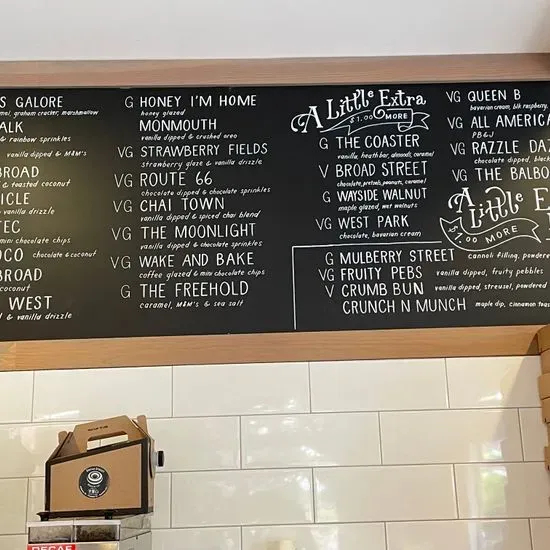 S GALORE
mel, graham cracker, marshmallow
ALK
& rainbow sprinkles
vanilla dipped & M&M's
BROAD
& toasted coconut
ICLE
vanilla drizzle
TEC
mini chocolate chips
OCO chocolate & coconut
BROAD
coconut
WEST
l & vanilla drizzle
G HONEY I'M HOME
honey glazed
MONMOUTH
vanilla dipped & crushed oreo
VG STRAWBERRY FIELDS
strawberry glaze & vanilla drizzle
VG ROUTE 66
chocolate dipped & chocolate sprinkles
VG CHAI TOWN
vanilla dipped & spiced chai blend
VG THE MOONLIGHT
vanilla dipped & chocolate sprinkles
VG WAKE AND BAKE
coffee glazed & mini chocolate chips
G THE FREEHOLD
caramel, M&M's & sea salt
A Little Extra
$1.00 MORE
G THE COASTER
vanilla, heath bar, almonds, caramel
V BROAD STREET
chocolate, pretzels, peanuts, caramel
G WAYSIDE WALNUT
maple glazed, wet walnuts
VG WEST PARK
chocolate, bavarian cream
VG QUEEN B
bavarian cream, blk raspberry,
VG ALL AMERICA
PB&J
VG RAZZLE DAZ
chocolate dipped, black
VG THE BALBO
A Little E
$1.00 MORE
G MULBERRY STREET cannoli filling, powdered
VG FRUITY PEBS vanilla dipped, fruity pebbles
V CRUMB BUN vanilla dipped, streusel, powdered
CRUNCH N MUNCH maple dip, cinnamon toas
DECAF